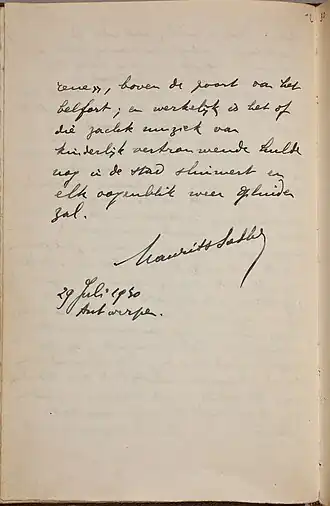 boven de poort van het
belfort; en werkelijk is het of
die zachte muziek van
kinderlijk vertrouwende hulde
nog in de stad sluimert en
elk oogenblik weer opluiden
zal.
Maurits Sabbe
29 Juli 1930
Antwerpen.